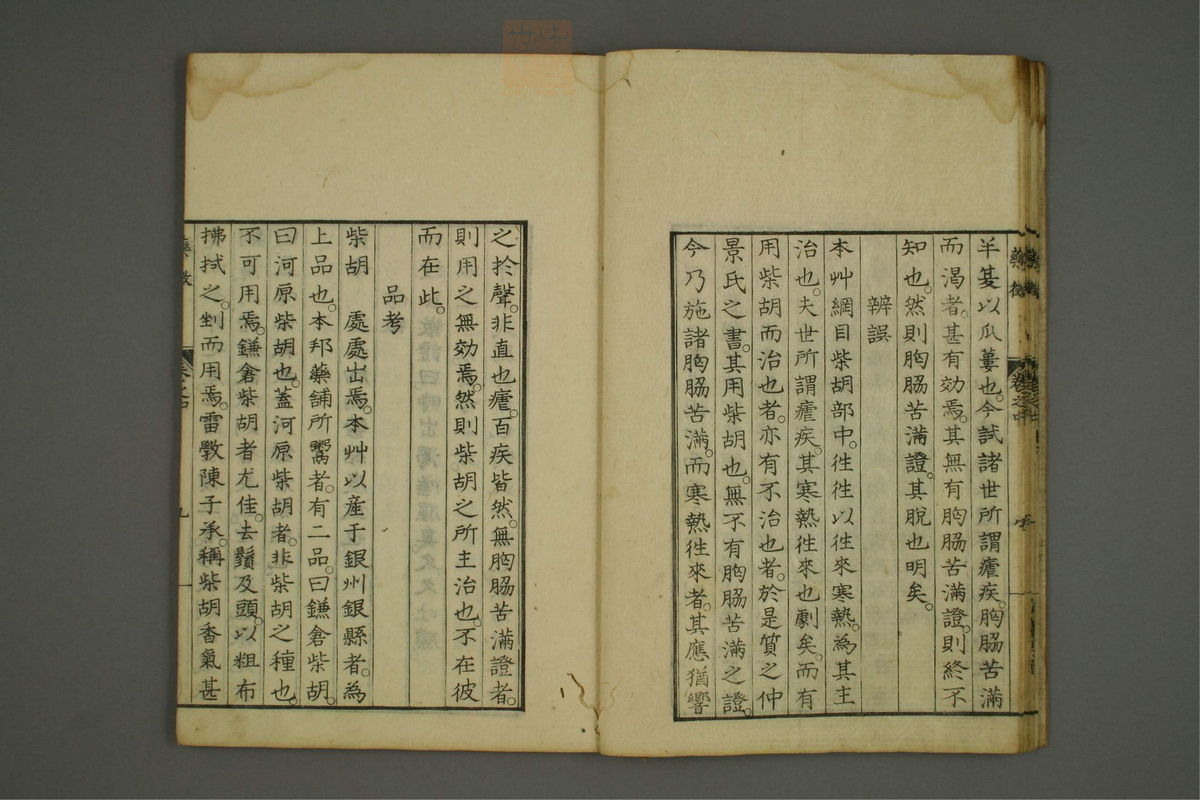 半夏以瓜蔞也。今試諸世所謂瘧疾。胸脇苦滿
而渴者。甚有効焉。其無有胸脇苦滿證。則終不
知也。然則胸脇苦滿證。其脫也明矣。
辨誤
本艸綱目柴胡部中。徃徃以徃來寒熱。為其主
治也。夫世所謂瘧疾。其寒熱徃來也劇矣。而有
用柴胡而治也者。亦有不治也者。於是質之仲
景氏之書。其用柴胡也。無不有胸脇苦滿之證。
今乃施諸胸脇苦滿。而寒熱徃來者。其應猶響
之於聲。非直也瘧。百疾皆然。無胸脇苦滿證者。
則用之無効焉。然則柴胡之所主治也。不在彼
而在此。
品考
柴胡　處處出焉。本艸以產于銀州銀縣者。為
上品也。本邦藥舖所鬻者。有二品。曰鎌倉柴胡。
曰河原柴胡也。蓋河原柴胡者。非柴胡之種也。
不可用焉。鎌倉柴胡者尤佳。去鬚及頭。以粗布
拂拭之。剉而用焉。雷斅陳子承。稱柴胡香氣甚